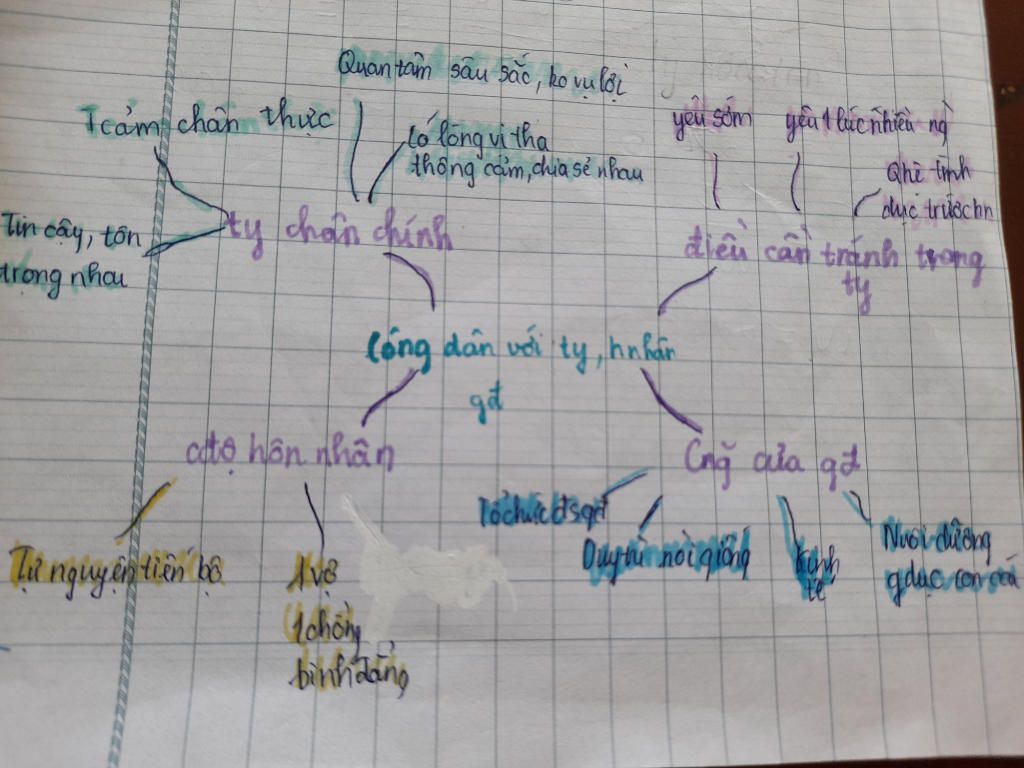 Quan tâm sâu sắc, ko vụ lợi
Tcảm chân thực
có lòng vị tha
thông cảm, chia sẻ nhau
yêu sớm
yêu 1 lúc nhiều ng
Qhệ tình
dục trước hn
Tin cậy, tôn
trọng nhau
ty chân chính
điều cần tránh trong
ty
Công dân với ty, hnhân
gđ
cđộ hôn nhân
Cng̃ của gđ
Tổ chức đsgđ
Duy trì nòi giống
kinh
tế
Nuôi dưỡng
gdục con cái
Tự nguyện tiến bộ
1 vợ
1 chồng
bình đẳng